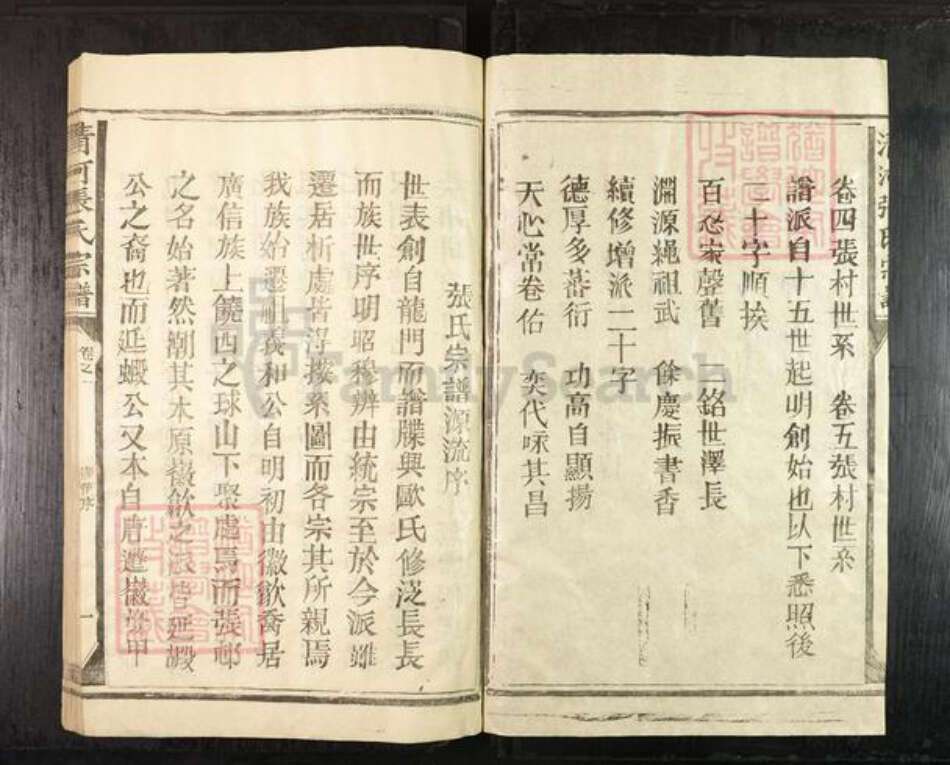 卷四張村世系 卷五張村世系
譜派自十五世起明創始也以下悉照後
二十字順挨
百忍家聲舊 二銘世澤長
淵源繩祖武 餘慶振書香
續修增派二十字
德厚多蕃衍 功高自顯揚
天心常眷佑 奕代咏其昌
清河張氏宗譜
張氏宗譜源流序
世表創自龍門而譜牒興歐氏修泛長長
而族世序明昭穆辨由統宗至於今派雖
遷居析處皆得按系圖而各宗其所親焉
我族始遷祖義和公自明初由徽歙喬居
廣信族上饒西之球山下聚處焉而張邨
之名始著然溯其木原徽歙之派皆延嘏
公之裔也而延嘏公又本自唐遷徽始甲
清河張氏宗譜 卷之一 源流序 一
FamilySearch